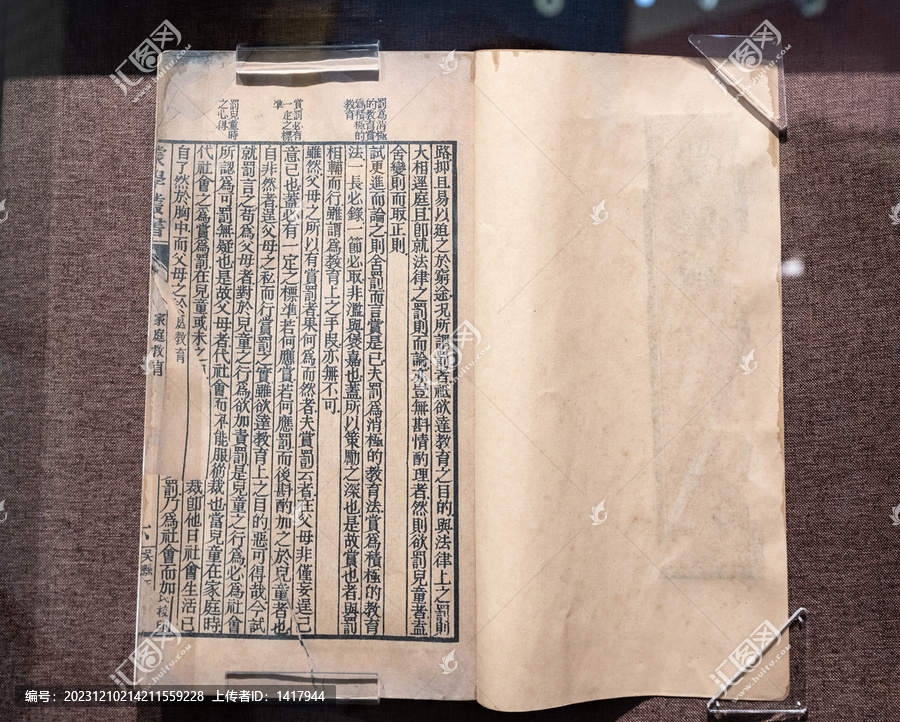 罰為消極
的教育賞
為積極的
教育
賞罰必有
一定之標
準
罰兒童時
之心得
路抑且易以迫之於窮途況所謂罰者祗欲達教育之目的與法律上之罰則
大相逕庭且卽就法律之罰則而論亦豈無斟情酌理者然則欲罰兒童者盍
舍變則而取正則
試更進而論之則舍罰而言賞是已夫罰為消極的教育法賞為積極的教育
法一長必錄一節必取非濫與褒嘉也蓋所以策勵之深也是故賞也者與罰
相輔而行雖謂為教育上之手段亦無不可
雖然父母之所以有賞罰者果何為而然者夫賞罰云者在父母非僅妄逞己
意已也蓋必有一定之標準若何應賞若何應罰而後斟酌加之於兒童者也
自非然者逞父母之私而行賞罰之實雖欲達教育上之目的惡可得哉今試
就罰言之苟為父母者對於兒童之行為欲加責罰是兒童之行為必為社會
所認為可罰無疑也是故父母者代社會而不能服從裁也當兒童在家庭時
代社會之為賞為罰在兒童或未之
裁卽他日社會生活已
自了然於胸中而父母之
庭教育
罰乃為社會而加
蒙學叢書
家庭教育
六
吳縣
校印
图网
www.huitu.com
编号：20231210214211559228 上传者ID：1417944